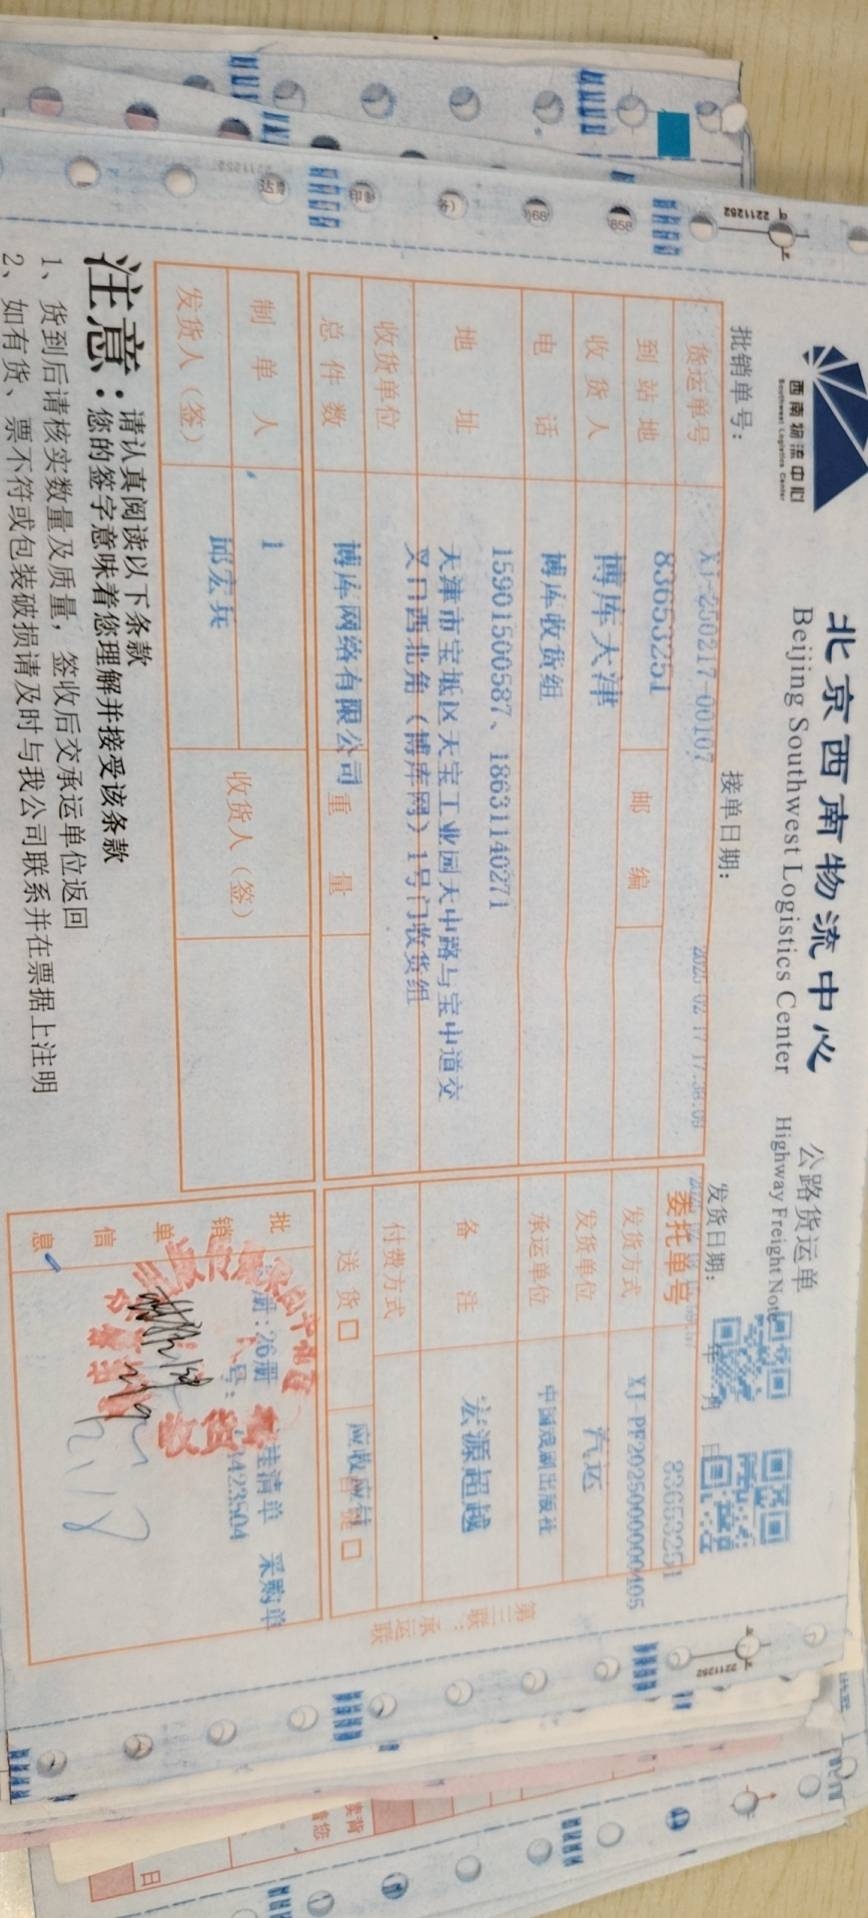 西南物流中心
Southwest Logistics Center
北京西南物流中心
Beijing Southwest Logistics Center
公路货运单
Highway Freight Note
批销单号：
接单日期：
发货日期：
年 月 日
货运单号 XJ-250217-00107
2025-02-17 17:38:09
委托单号 83653251
到站地 83653251
邮编
发货方式 XJ-PF20250000000405
收货人 博库天津
发货单位 汽运
电话 博库收货组
承运单位 中国戏剧出版社
地址 15901500587、18631140271
天津市宝坻区天宝工业园天中路与宝中道交
叉口西北角（博库网）1号门收货组
备注 宏源超越
收货单位
付费方式
总件数 博库网络有限公司
重量
送货 □ 应收应付 □
制单人 1
收货人（签）
发货人（签） 邱宏兵
批销单信息
册：26册
清单 采购单
号：
423504
收货
2.18
第三联：承运联
注意：
请认真阅读以下条款
您的签字意味着您理解并接受该条款
1、货到后请核实数量及质量，签收后交承运单位返回
2、如有货、票不符或包装破损请及时与我公司联系并在票据上注明
2211252
2211252